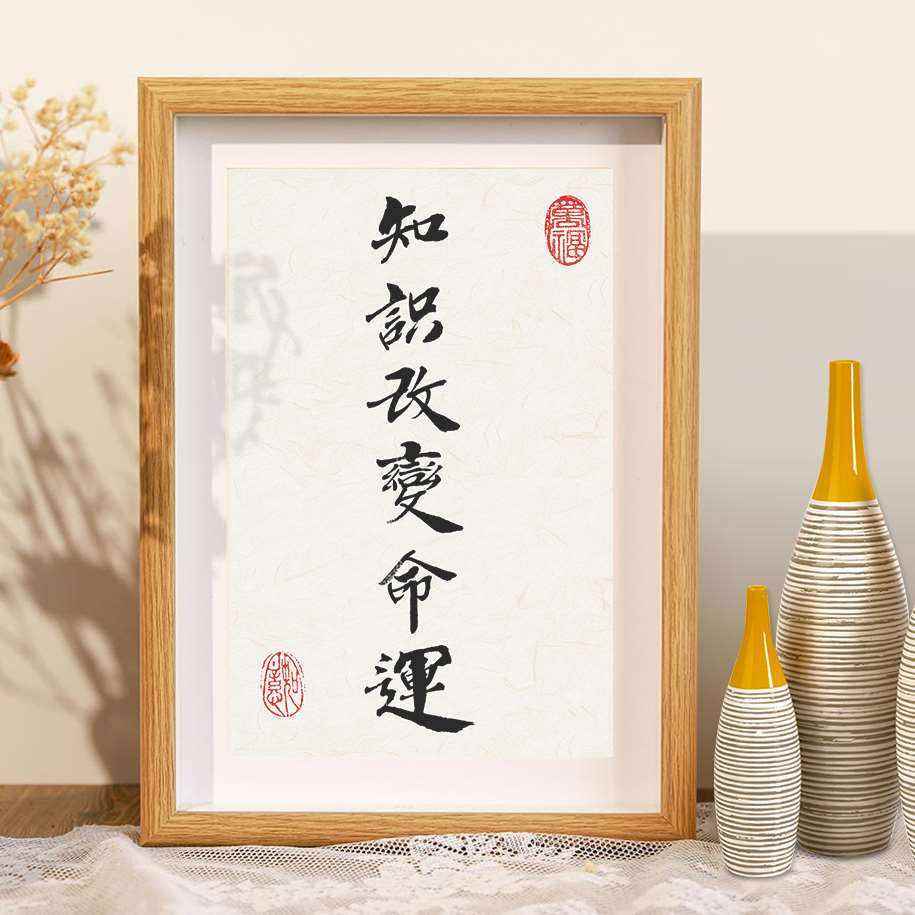 知識改變命運